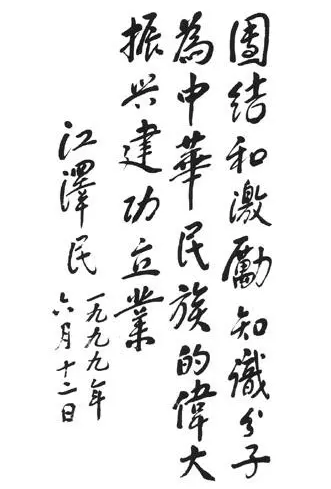 團结和激勵知識分子
為中華民族的偉大
振兴建功立業
江澤民
一九九九年
六月十二日